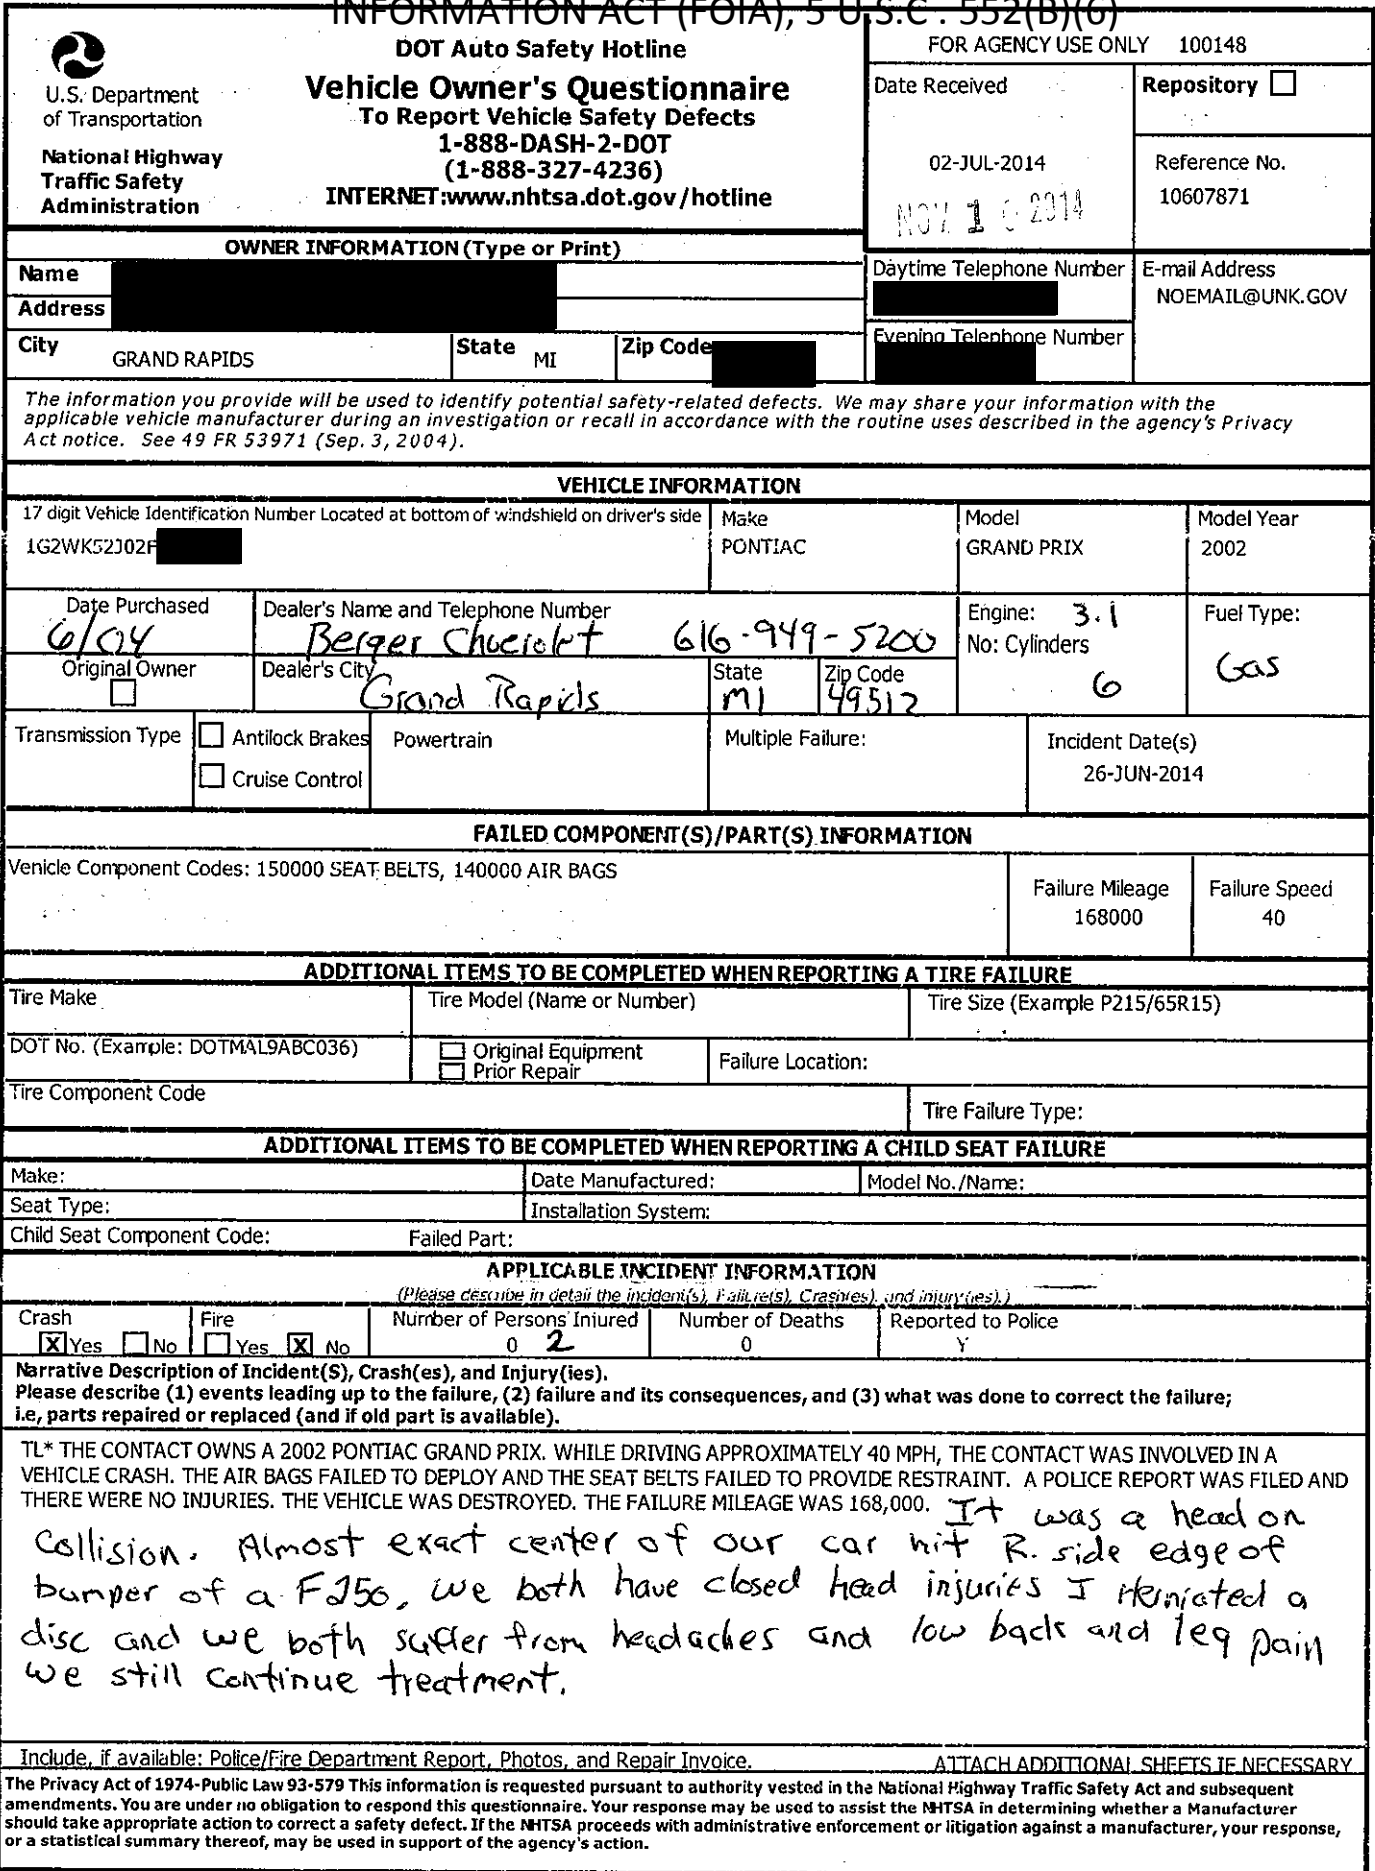 INFORMATION ACT (FOIA), 5 U.S.C . 552(B)(6)
U.S. Department
of Transportation
National Highway
Traffic Safety
Administration
DOT Auto Safety Hotline
Vehicle Owner's Questionnaire
To Report Vehicle Safety Defects
1-888-DASH-2-DOT
(1-888-327-4236)
INTERNET:www.nhtsa.dot.gov/hotline
FOR AGENCY USE ONLY 100148
Date Received
02-JUL-2014
NOV 1 2014
Repository
Reference No.
10607871
OWNER INFORMATION (Type or Print)
Name
Address
City GRAND RAPIDS State MI Zip Code
Daytime Telephone Number
Evening Telephone Number
E-mail Address
NOEMAIL@UNK.GOV
The information you provide will be used to identify potential safety-related defects. We may share your information with the
applicable vehicle manufacturer during an investigation or recall in accordance with the routine uses described in the agency's Privacy
Act notice. See 49 FR 53971 (Sep. 3, 2004).
VEHICLE INFORMATION
17 digit Vehicle Identification Number Located at bottom of windshield on driver's side Make Model Model Year
1G2WK52J02F PONTIAC GRAND PRIX 2002
Date Purchased Dealer's Name and Telephone Number Engine: 3.1 Fuel Type:
6/04 Berger Chverolet 616-949-5200 No: Cylinders
Original Owner Dealer's City Grand Rapids State MI Zip Code 49512 6 Gas
Transmission Type Antilock Brakes Powertrain Multiple Failure: Incident Date(s)
Cruise Control 26-JUN-2014
FAILED COMPONENT(S)/PART(S) INFORMATION
Venicle Component Codes: 150000 SEAT BELTS, 140000 AIR BAGS
Failure Mileage Failure Speed
168000 40
ADDITIONAL ITEMS TO BE COMPLETED WHEN REPORTING A TIRE FAILURE
Tire Make Tire Model (Name or Number) Tire Size (Example P215/65R15)
DOT No. (Example: DOTMAL9ABC036) Original Equipment Failure Location:
Prior Repair
Tire Component Code Tire Failure Type:
ADDITIONAL ITEMS TO BE COMPLETED WHEN REPORTING A CHILD SEAT FAILURE
Make: Date Manufactured: Model No./Name:
Seat Type: Installation System:
Child Seat Component Code: Failed Part:
APPLICABLE INCIDENT INFORMATION
(Please describe in detail the incident(s), Failure(s), Crash(es), and injury(ies).)
Crash Fire Number of Persons Injured Number of Deaths Reported to Police
X Yes No Yes X No 0 2 0 Y
Narrative Description of Incident(S), Crash(es), and Injury(ies).
Please describe (1) events leading up to the failure, (2) failure and its consequences, and (3) what was done to correct the failure;
i.e, parts repaired or replaced (and if old part is available).
TL* THE CONTACT OWNS A 2002 PONTIAC GRAND PRIX. WHILE DRIVING APPROXIMATELY 40 MPH, THE CONTACT WAS INVOLVED IN A
VEHICLE CRASH. THE AIR BAGS FAILED TO DEPLOY AND THE SEAT BELTS FAILED TO PROVIDE RESTRAINT. A POLICE REPORT WAS FILED AND
THERE WERE NO INJURIES. THE VEHICLE WAS DESTROYED. THE FAILURE MILEAGE WAS 168,000. It was a head on
Collision. Almost exact center of our car hit R. side edge of
bumper of a F250, we both have closed head injuries I Herniated a
disc and we both suffer from headaches and low back and leg pain
we still continue treatment.
Include, if available: Police/Fire Department Report, Photos, and Repair Invoice. ATTACH ADDITIONAL SHEETS IF NECESSARY
The Privacy Act of 1974-Public Law 93-579 This information is requested pursuant to authority vested in the National Highway Traffic Safety Act and subsequent
amendments. You are under no obligation to respond this questionnaire. Your response may be used to assist the NHTSA in determining whether a Manufacturer
should take appropriate action to correct a safety defect. If the NHTSA proceeds with administrative enforcement or litigation against a manufacturer, your response,
or a statistical summary thereof, may be used in support of the agency's action.